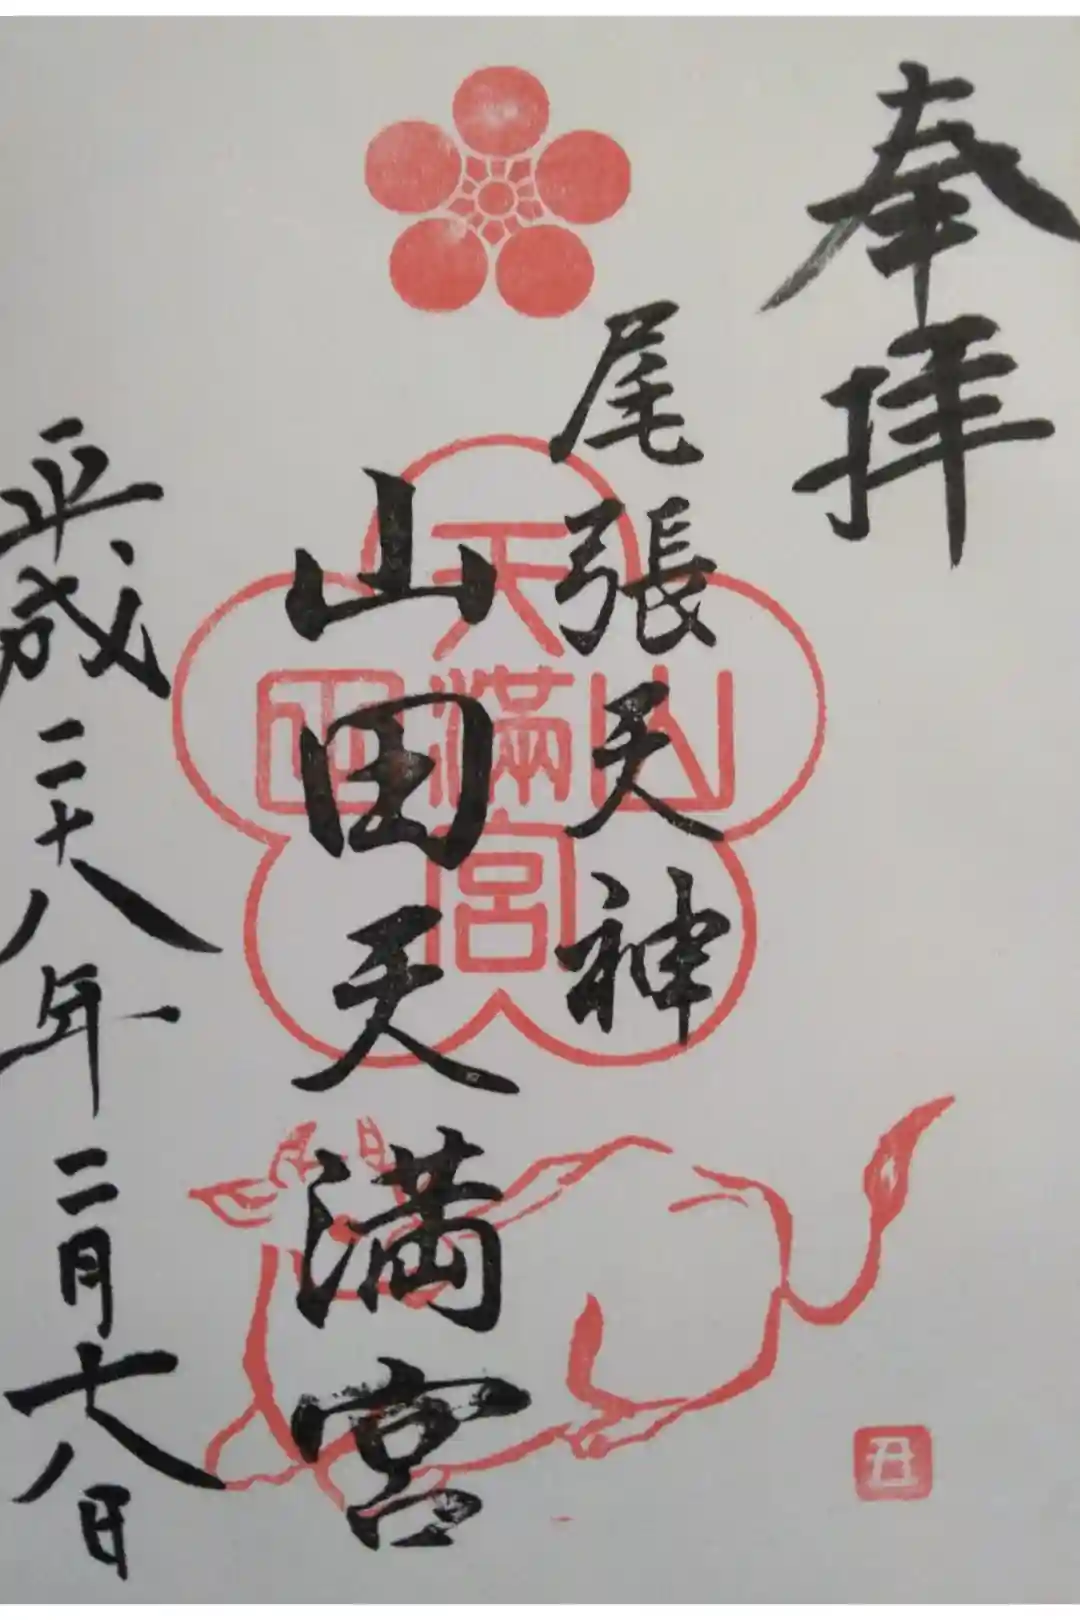 奉拝
尾張天神
山田天満宮
平成二十八年二月十八日
天
山満田
宮
丑